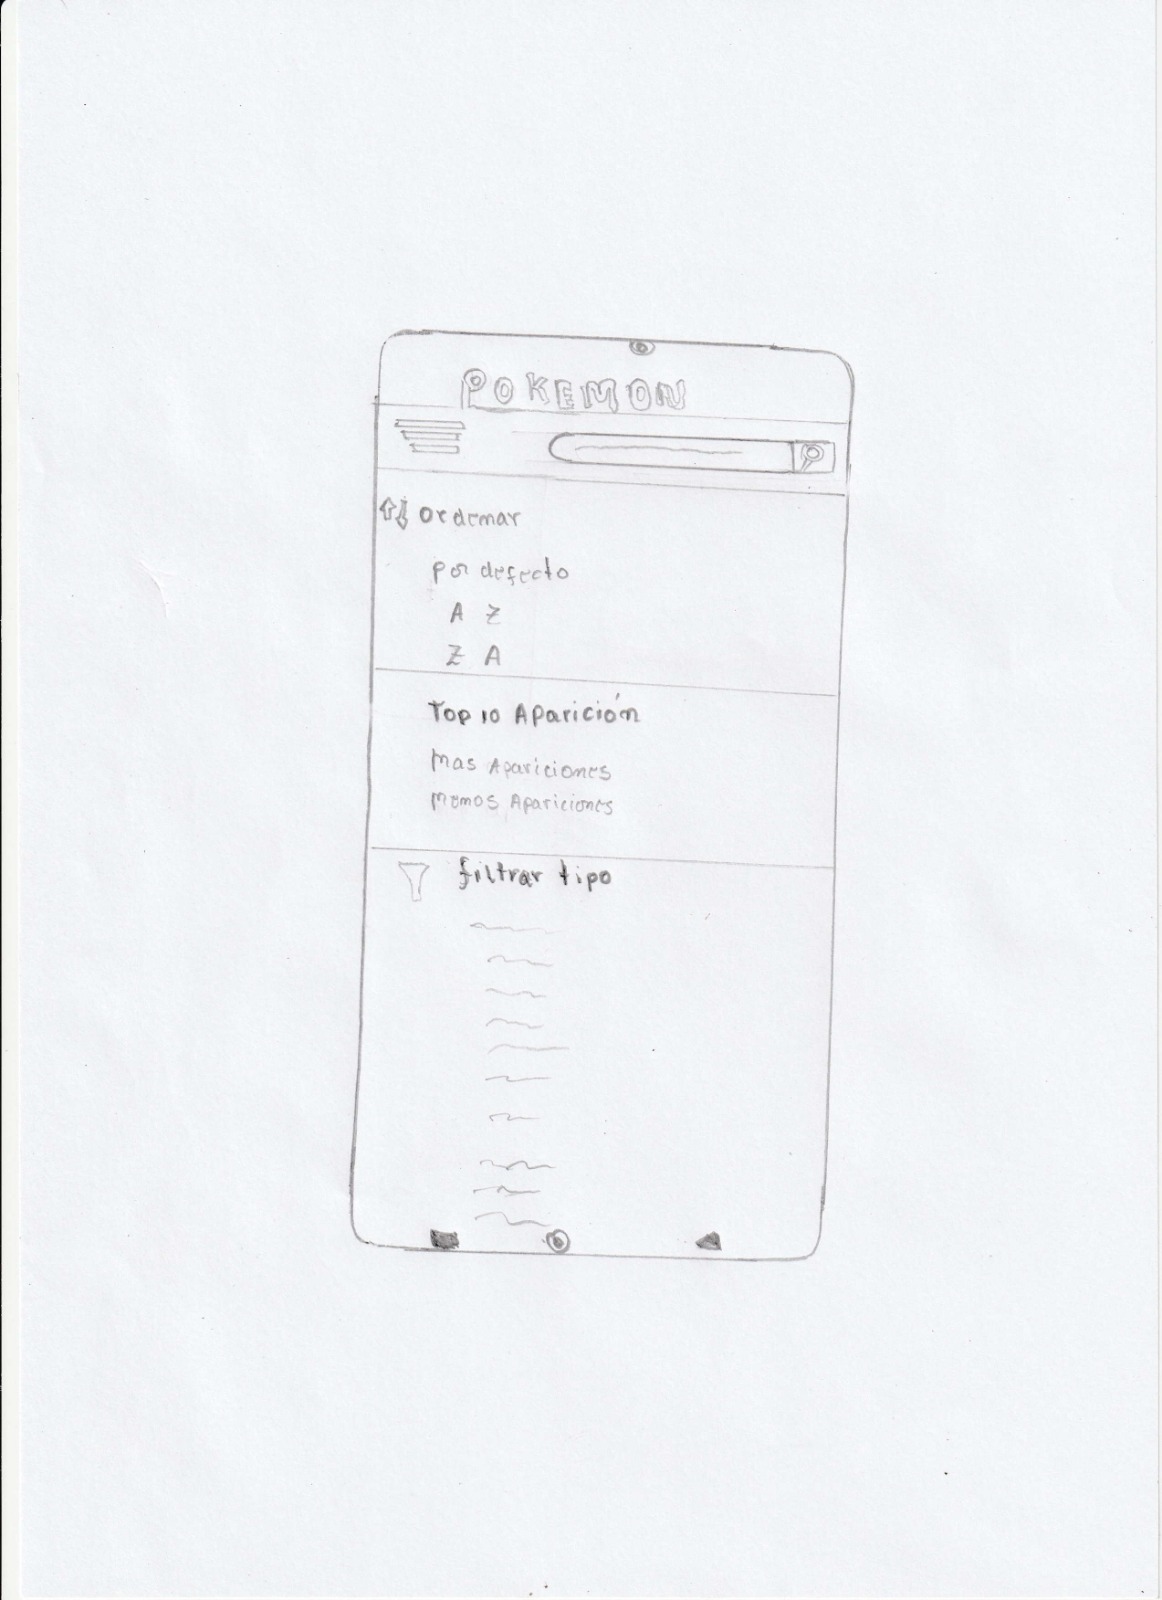 POKEMON
ordenar
por defecto
A Z
Z A
Top 10 Aparición
Mas Apariciones
Menos Apariciones
filtrar tipo